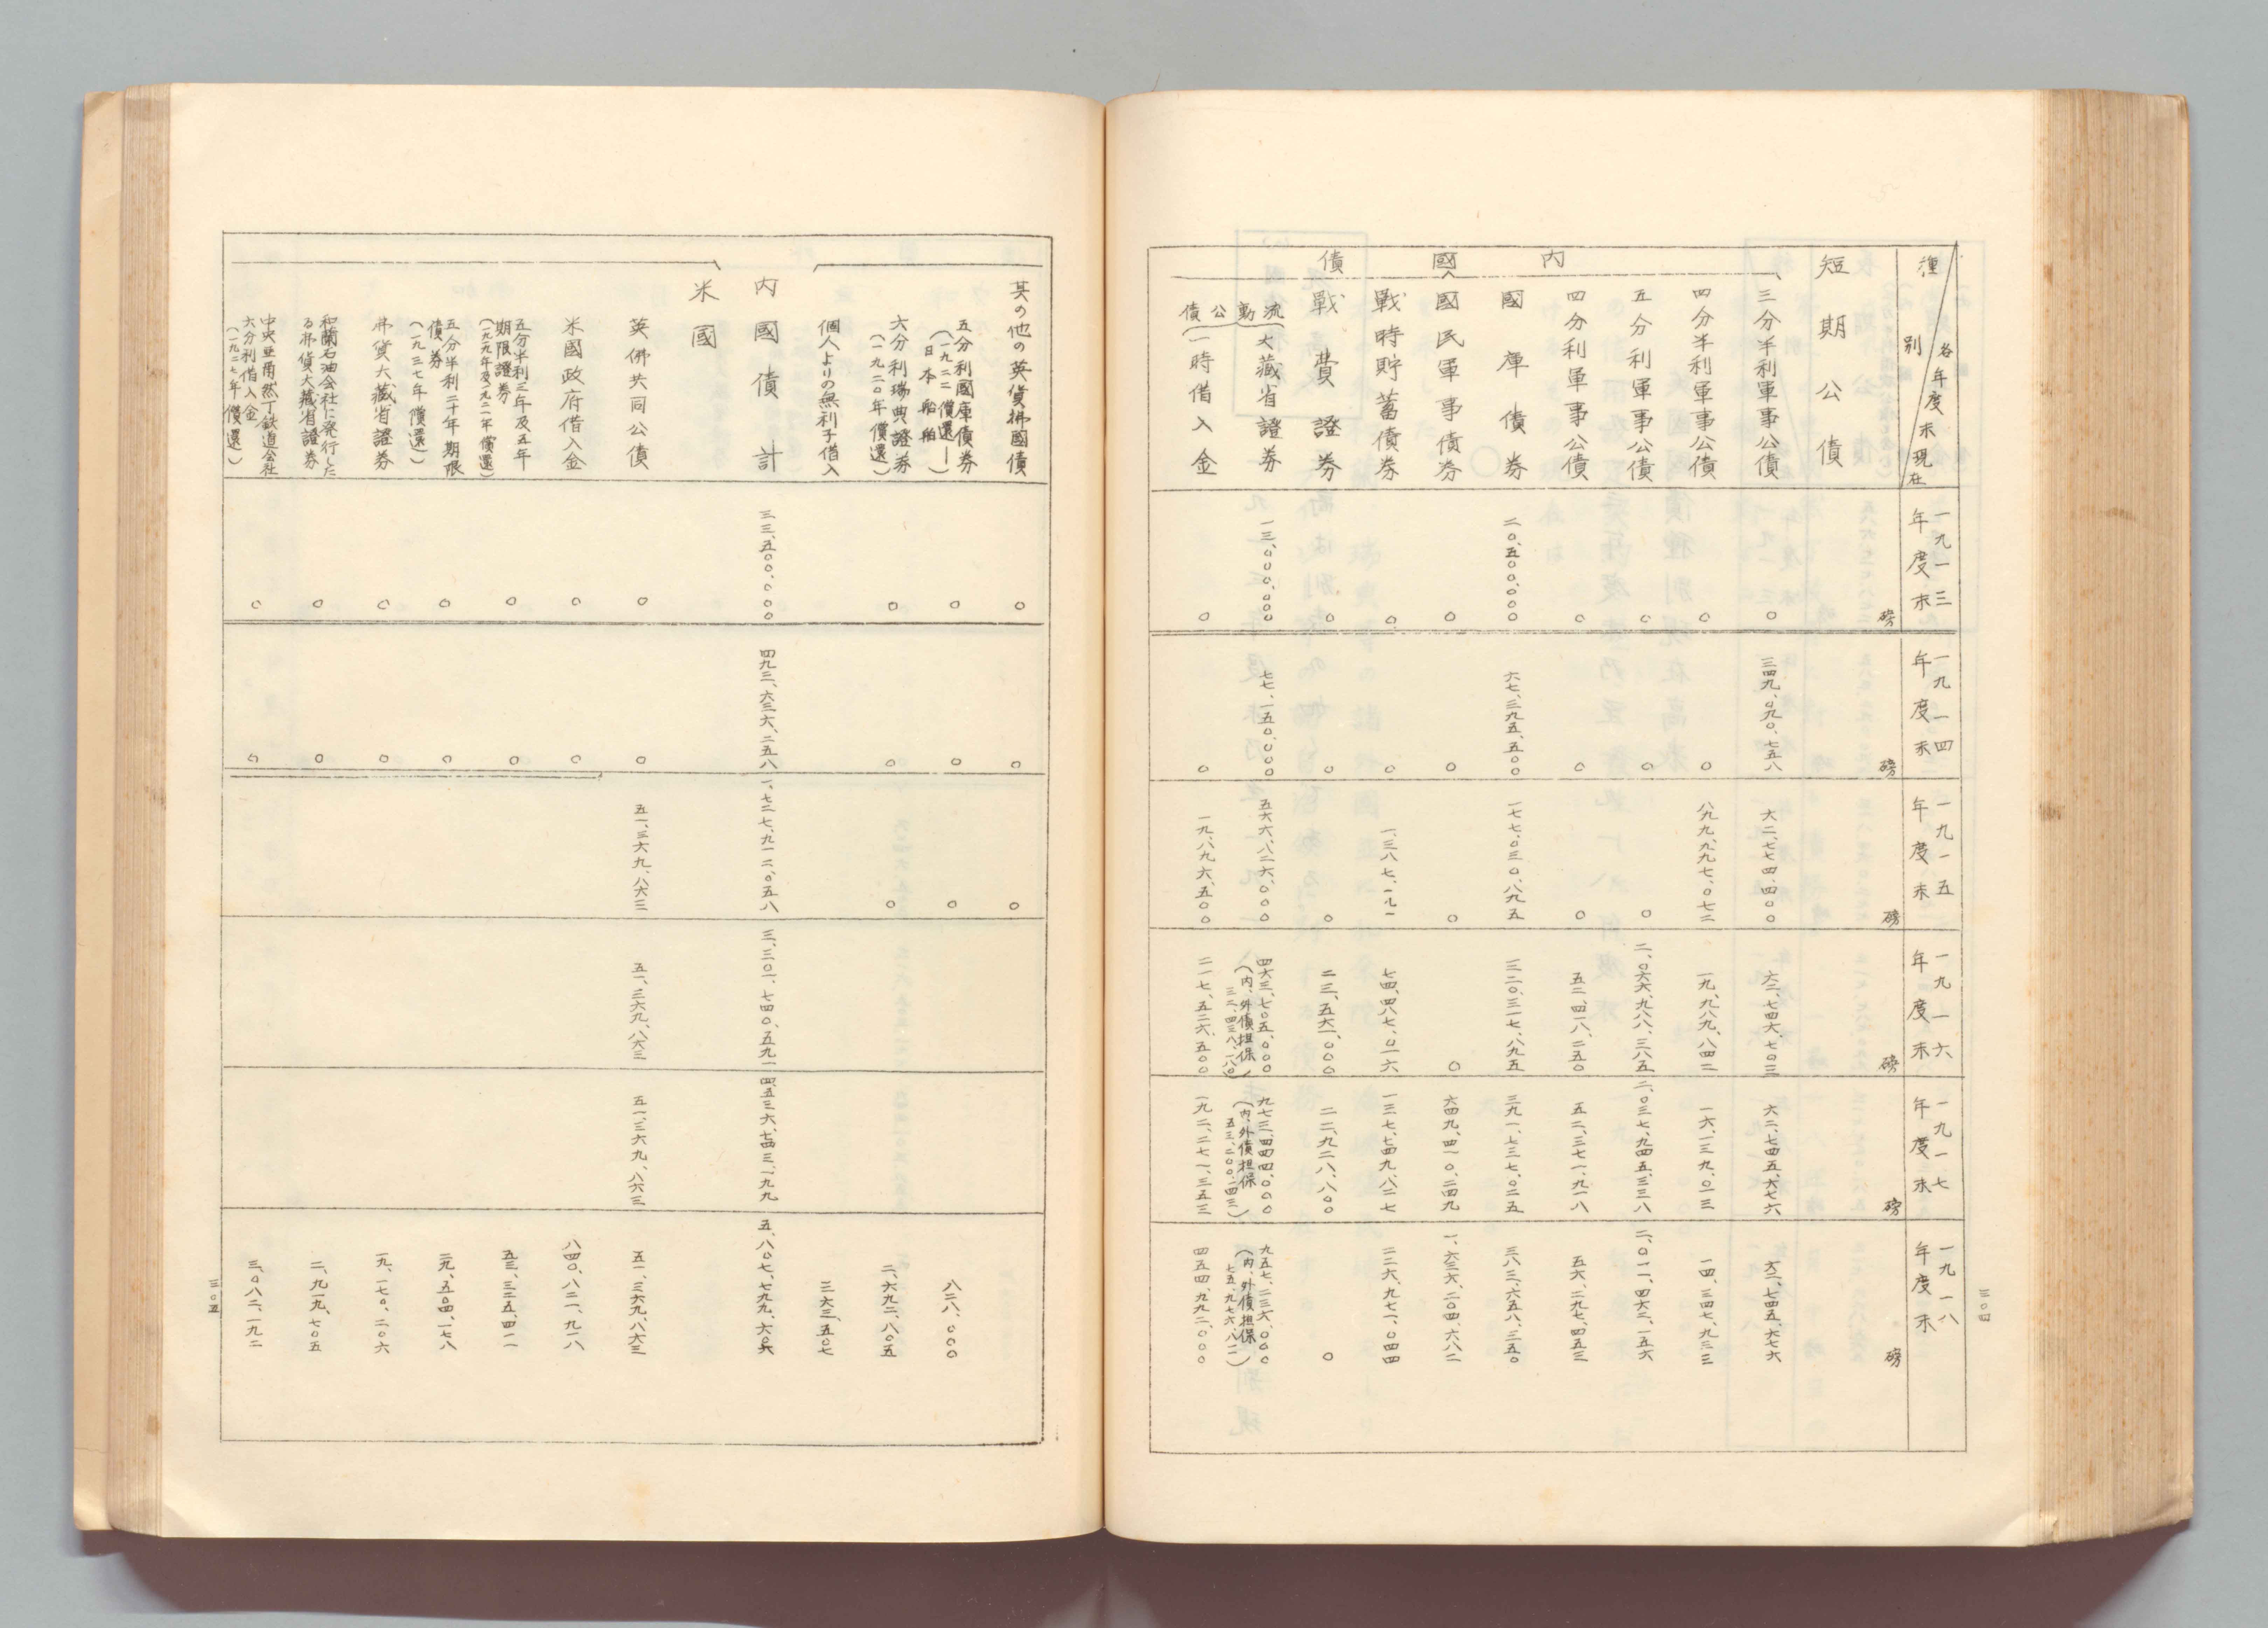 種別 各年度末現在
一九一三年度末
一九一四年度末
一九一五年度末
一九一六年度末
一九一七年度末
一九一八年度末
短期公債 磅 磅 磅 磅 磅 磅
内國債
三分半利軍事公債 〇 三四九、〇九〇、七五八 六二、七七四、四〇〇 六二、七四六、七〇三 六二、七四五、六七六 六二、七四五、六七六
四分半利軍事公債 〇 〇 八九九、九九七、〇七二 一九、九八九、八四二 一六、一三九、〇一三 一四、三四七、九三三
五分利軍事公債 〇 〇 〇 二、〇六六、九八八、三八五 二、〇三七、九四五、三三八 二、〇一一、四六二、一五六
四分利軍事公債 〇 〇 〇 五二、四一八、二五〇 五二、三七一、九一八 五六、二九七、四五三
國庫債券 二〇、五〇〇、〇〇〇 六七、三九五、五〇〇 一七七、〇三〇、八九五 三二〇、三一七、八九五 三九一、七三七、〇二五 三八三、六五八、三五〇
國民軍事債券 〇 〇 〇 〇 六四九、四一〇、二四九 一、六三六、二〇四、六八二
戰時貯蓄債券 〇 〇 一、三八七、一九一 七四、四八七、〇一六 一三七、七四九、八二七 二二六、九七一、〇四四
戰費證券 〇 〇 〇 二三、五六一、〇〇〇 二二、九二八、八〇〇 〇
流動公債
大藏省證券 一三、〇〇〇、〇〇〇 七七、一五〇、〇〇〇 五六六、八二六、〇〇〇 四六三、七〇五、〇〇〇 九七三、四四四、〇〇〇 九五七、二三六、〇〇〇
(内、外債担保 三二、四三八、一八〇) (内、外債担保 五三、二〇〇、四三一) (内、外債担保 七五、九七六、八一一)
一時借入金 〇 〇 一九、八九六、五〇〇 二一七、五二六、五〇〇 一九二、二七一、三五三 四五四、九九二、〇〇〇
三〇四
其の他の英貨拂國債 〇 〇 〇
五分利國庫債券
(一九二二償還ー
日本船舶) 〇 〇 〇 八二八、〇〇〇
六分利瑞典證券
(一九二〇年償還) 〇 〇 〇 二、六九二、八〇五
個人よりの無利子借入 三六三、五〇七
内國債計 三三、五〇〇、〇〇〇 四九三、六三六、二五八 一、七二七、九一二、〇五八 三、三〇一、七四〇、五九一 四、五三六、七四三、一九九 五、八〇七、七九九、六〇六
米國
英佛共同公債 〇 〇 五一、三六九、八六三 五一、三六九、八六三 五一、三六九、八六三 五一、三六九、八六三
米國政府借入金 〇 〇 八四〇、八二一、九一八
五分半利三年及五年
期限證券
(一九一九年及一九二一年償還) 〇 〇 五三、三三五、四一一
五分半利二十年期限
債券
(一九三七年償還) 〇 〇 二九、五〇四、一七八
弗貨大藏省證券 〇 〇 一九、一七〇、二〇六
和蘭石油会社に発行した
る弗貨大藏省證券 〇 〇 二、九一九、七〇五
中央亜爾然丁鉄道会社
六分利借入金
(一九二七年償還) 〇 〇 三、〇八二、一九二
三〇五